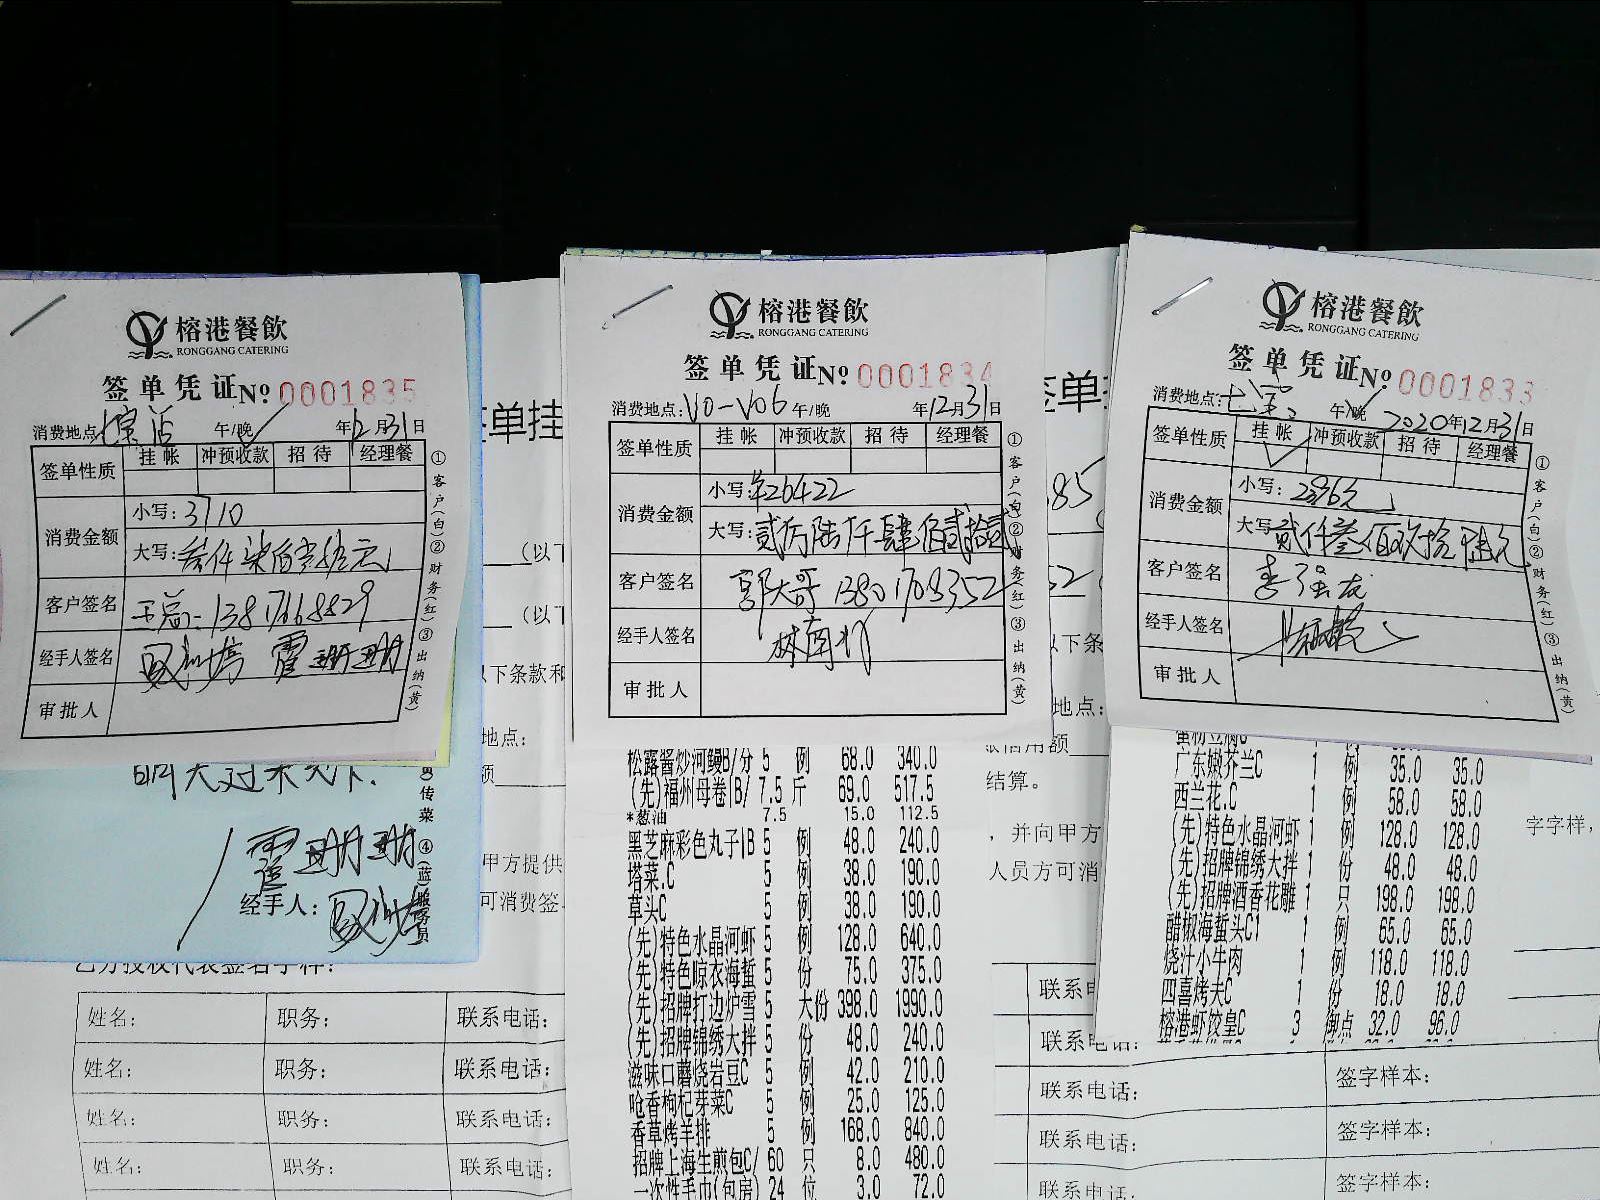 榕港餐飲
RONGGANG CATERING
签单凭证 No 0001835
消费地点: 午/晚 年12月31日
签单性质 挂帐 冲预收款 招待 经理餐
消费金额 小写: 3710
大写: 叁仟柒佰壹拾元
客户签名 王总: 13817668829
经手人签名 霍珊珊
审批人
①客户(白)②财务(红)③出纳(黄)
明天过来
霍珊珊
经手人:
传菜④(蓝)服务员
榕港餐飲
RONGGANG CATERING
签单凭证 No 0001834
消费地点: V0-V06 午/晚 年12月31日
签单性质 挂帐 冲预收款 招待 经理餐
消费金额 小写: ¥26422
大写: 贰万陆仟肆佰贰拾贰
客户签名 郭大哥 13801708352
经手人签名 林南
审批人
①客户(白)②财务(红)③出纳(黄)
松露酱炒河鳗B/分 5 例 68.0 340.0
(先)福州母卷|B/ 7.5 斤 69.0 517.5
*葱油 7.5 15.0 112.5
黑芝麻彩色丸子|B 5 例 48.0 240.0
塔菜.C 5 例 38.0 190.0
草头C 5 例 38.0 190.0
(先)特色水晶河虾 5 例 128.0 640.0
(先)特色晾衣海蜇 5 份 75.0 375.0
(先)招牌打边炉雪 5 大份 398.0 1990.0
(先)招牌锦绣大拌 5 份 48.0 240.0
滋味口蘑烧岩豆C 5 例 42.0 210.0
呛香枸杞芽菜C 5 例 25.0 125.0
香草烤羊排 5 例 168.0 840.0
招牌上海生煎包C/ 60 只 8.0 480.0
一次性毛巾(包房) 24 位 3.0 72.0
榕港餐飲
RONGGANG CATERING
签单凭证 No 0001833
消费地点: 午/晚 2020年12月31日
签单性质 挂帐 冲预收款 招待 经理餐
消费金额 小写: 2396元
大写: 贰仟叁佰玖拾陆元
客户签名 李强龙
经手人签名
审批人
①客户(白)②财务(红)③出纳(黄)
广东嫩芥兰C 1 例 35.0 35.0
西兰花.C 1 例 58.0 58.0
(先)特色水晶河虾 1 例 128.0 128.0
(先)招牌锦绣大拌 1 份 48.0 48.0
(先)招牌酒香花雕 1 只 198.0 198.0
醋椒海蜇头C1 1 例 65.0 65.0
烧汁小牛肉 1 例 118.0 118.0
四喜烤夫C 1 份 18.0 18.0
榕港虾饺皇C 3 御点 32.0 96.0
签单挂
(以下
(以下
以下条款和
地点:
额
甲方提供
可消费签
乙方授权代表签名字样:
姓名: 职务: 联系电话:
姓名: 职务: 联系电话:
姓名: 职务: 联系电话:
姓名: 职务: 联系电话:
签单
以下条
地点:
结算。
,并向甲方
人员方可消
字字样,
联系电
联系电话:
联系电话: 签字样本:
联系电话: 签字样本:
联系电话: 签字样本: